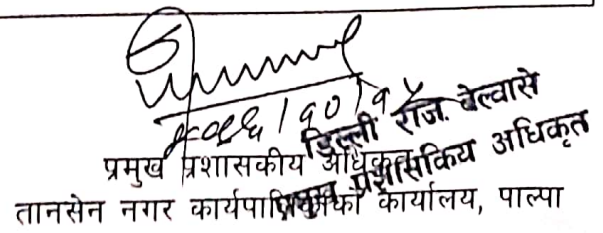 २०७६/१०/१५
डिल्ली राज बेल्वासे
प्रमुख प्रशासकिय अधिकृत
प्रमुख प्रशासकीय अधिकृत
तानसेन नगर कार्यपालिकाको कार्यालय, पाल्पा